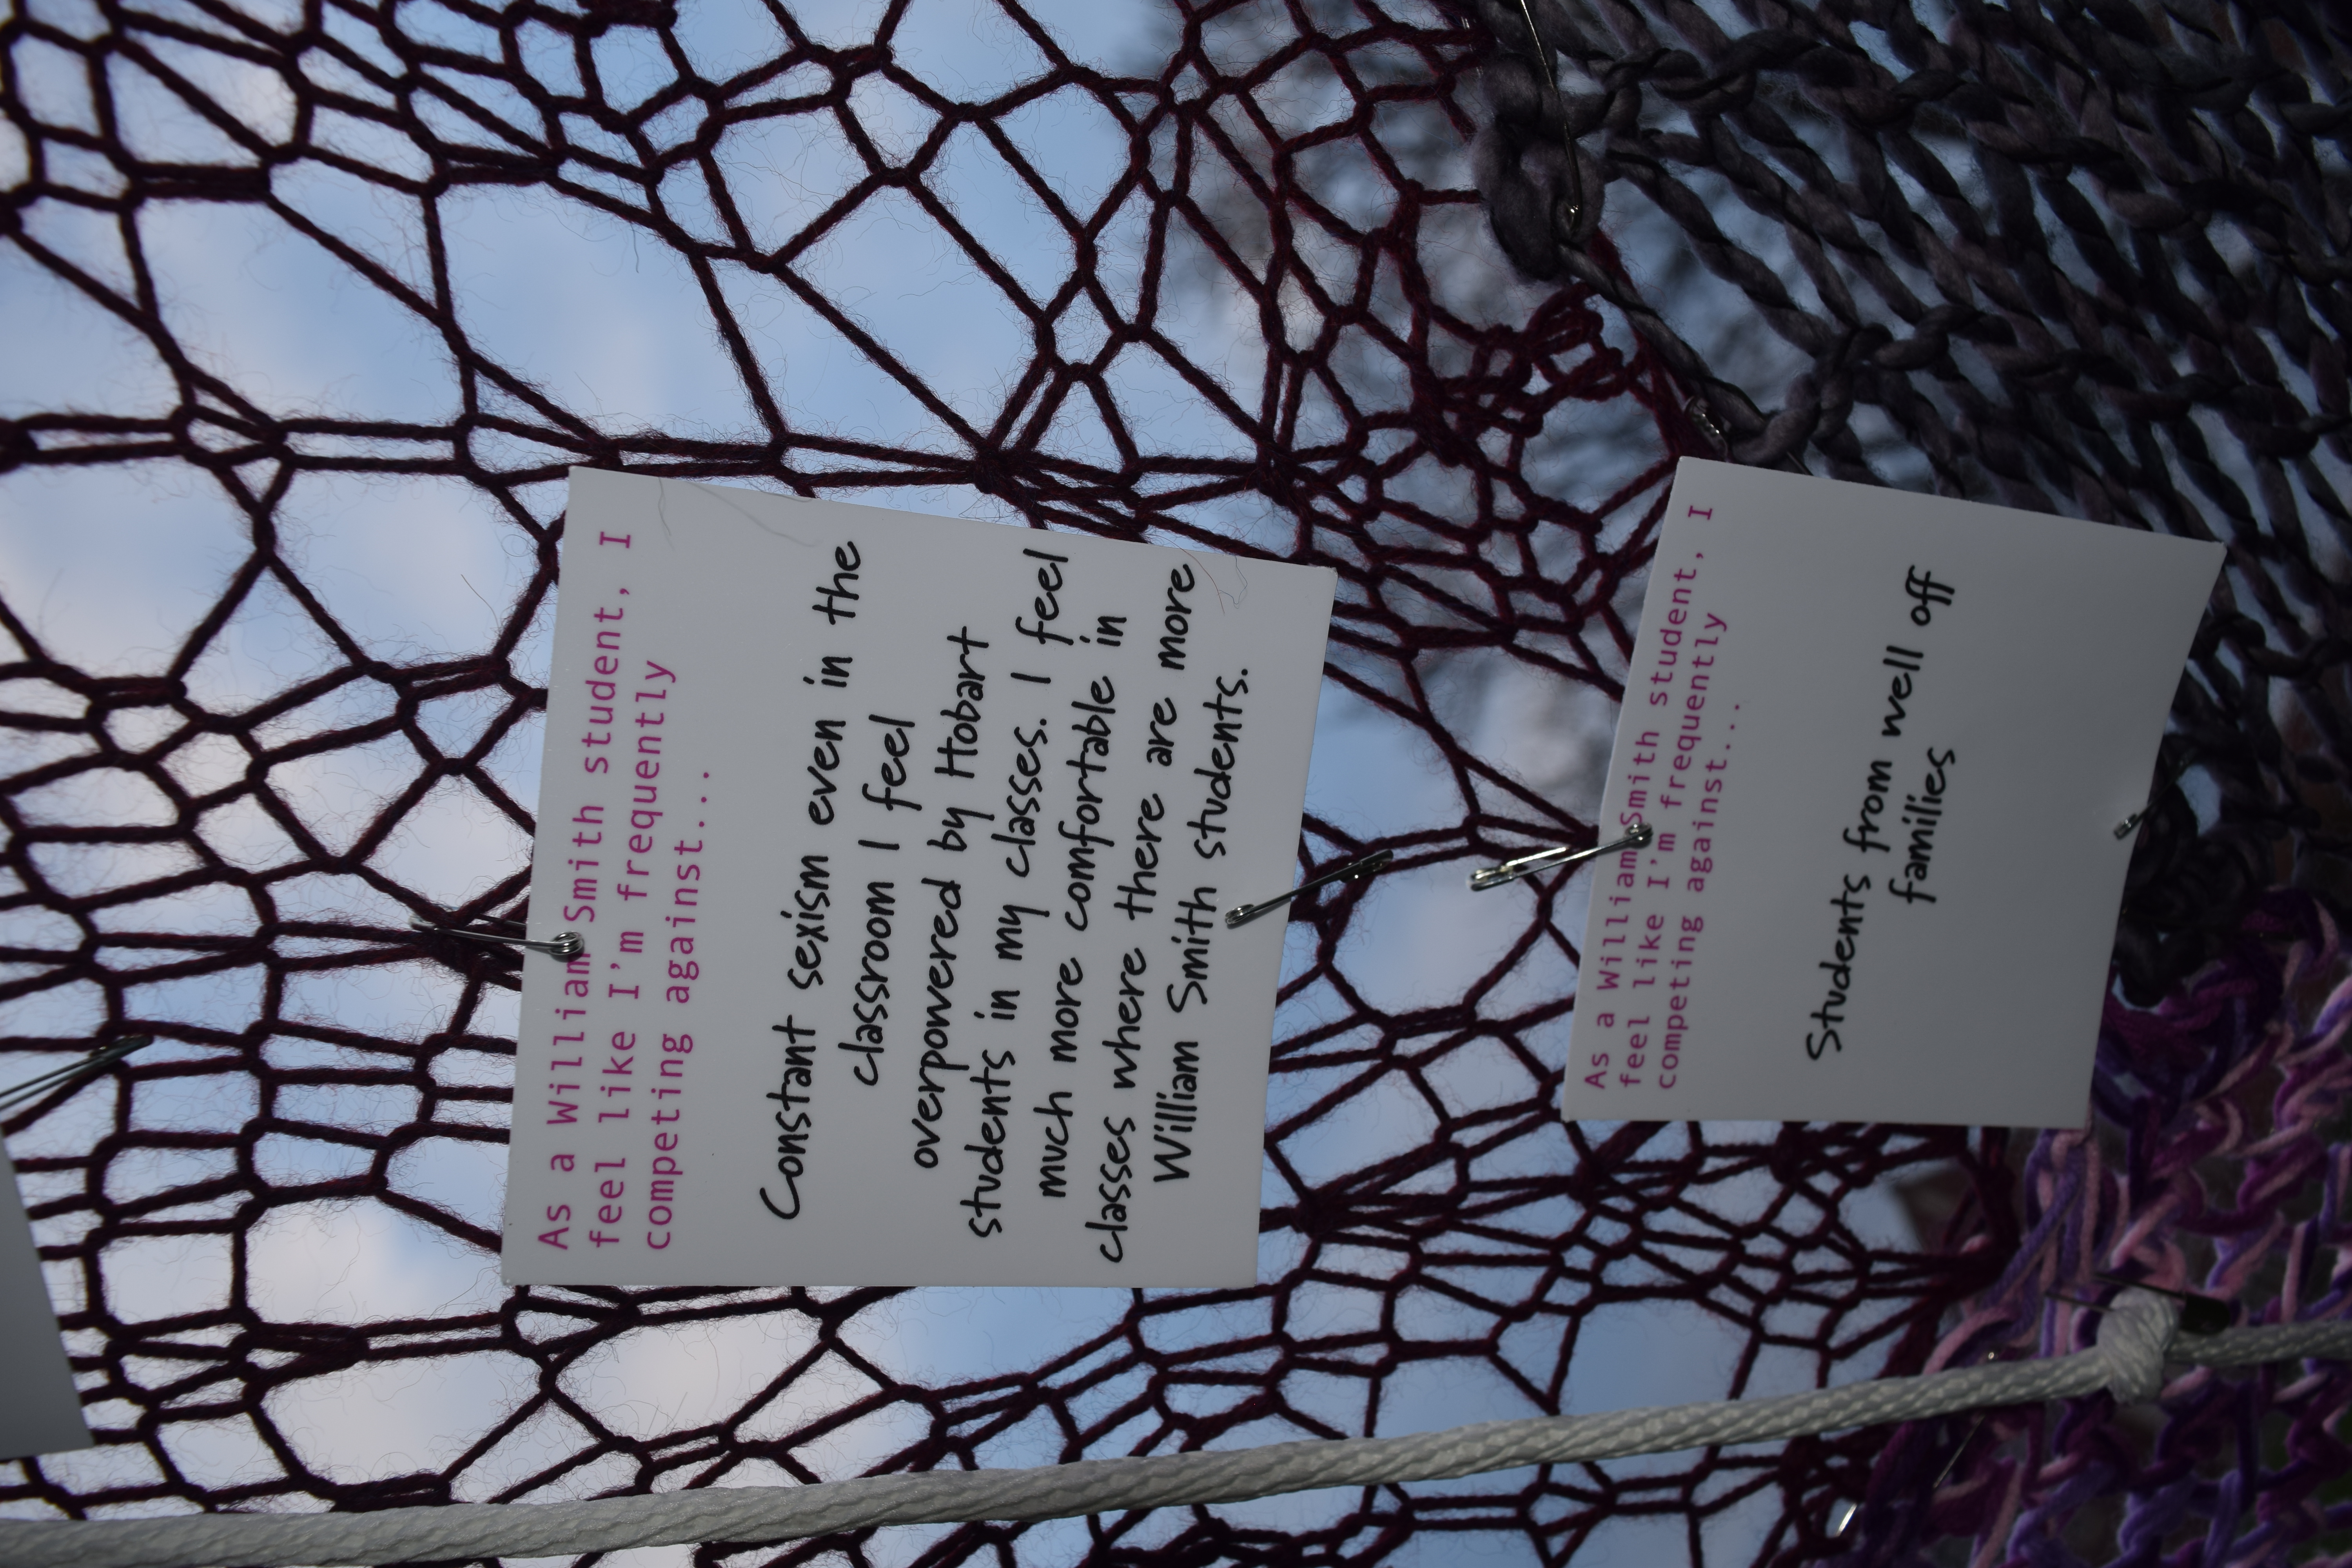 As a William Smith student, I
feel like I'm frequently
competing against...
Constant sexism even in the
classroom I feel
overpowered by Hobart
students in my classes. I feel
much more comfortable in
classes where there are more
William Smith students.
As a William Smith student, I
feel like I'm frequently
competing against...
Students from well off
families